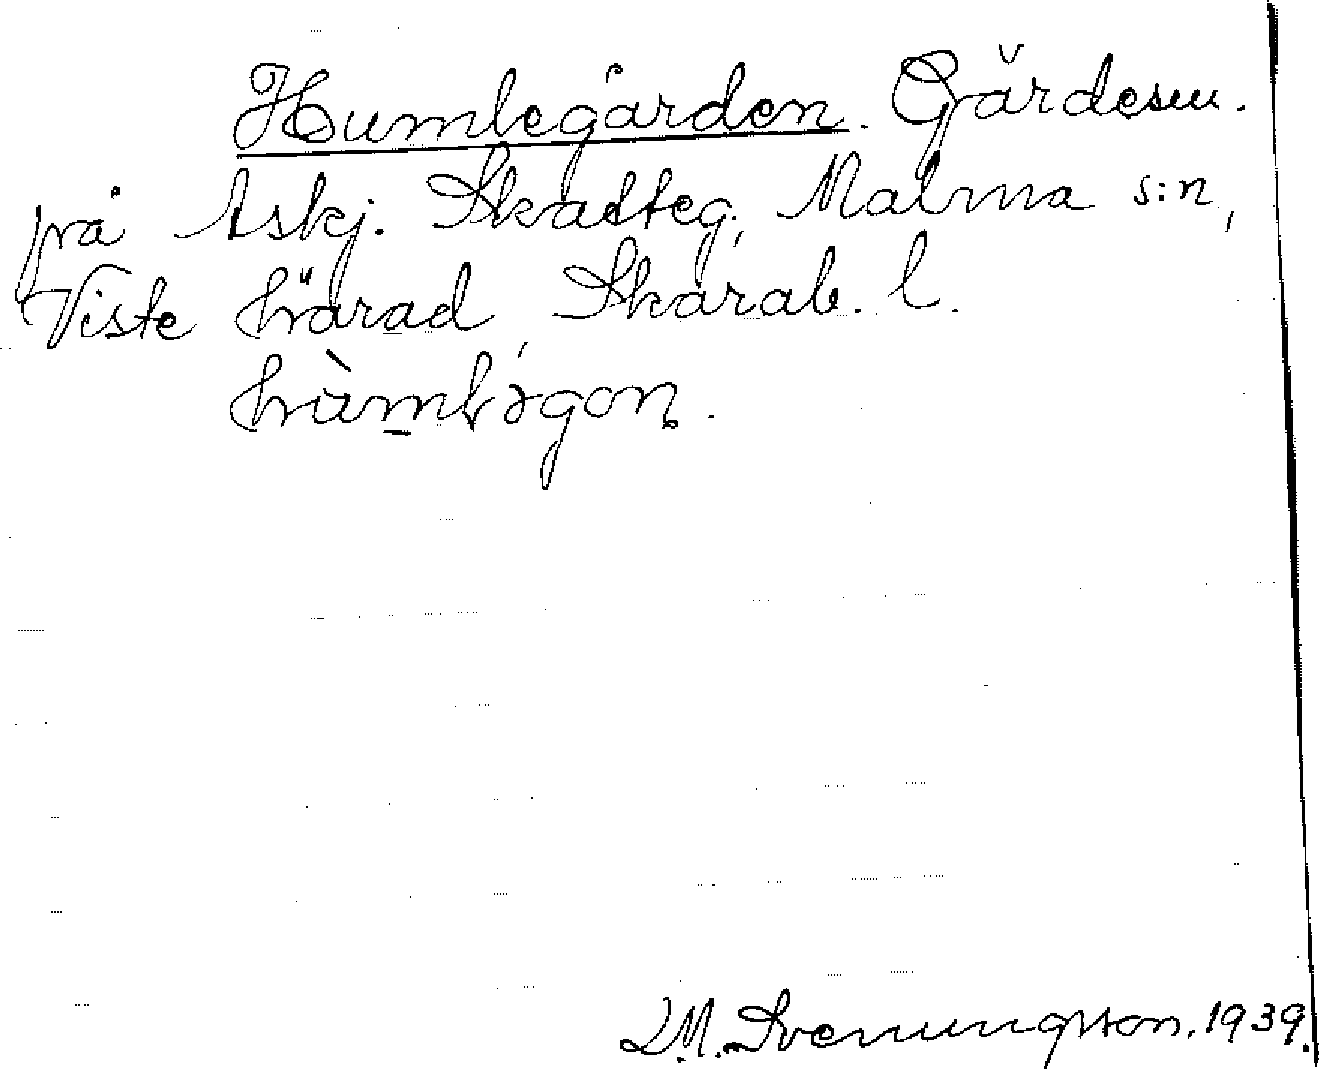 Humlegården. Gärdesm.
på 1skj. Skatteg, Malma s:n,
Viste härad, Skarab. l.
hùmbḷəgoṇ.
D.M. Svenungsson. 1939.